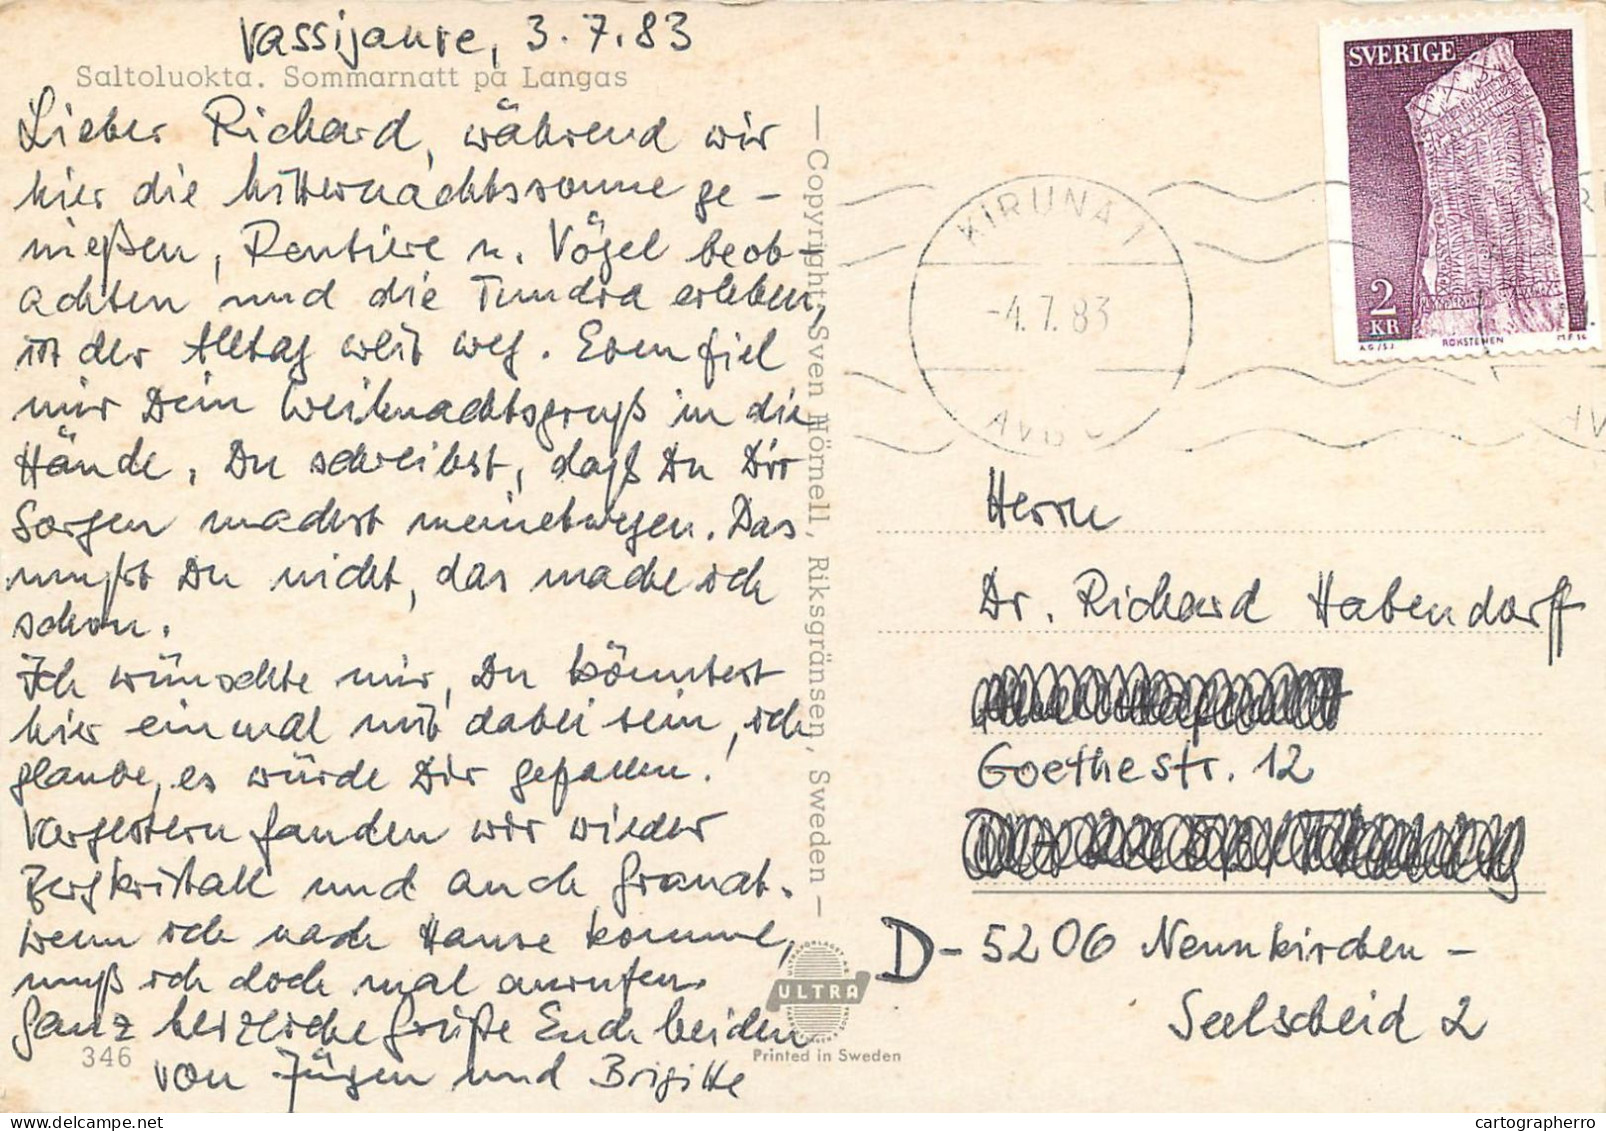 Vassijaure, 3.7.83
Saltoluokta. Sommarnatt på Langas
Lieber Richard, während wir
hier die Mitternachtssonne ge-
nießen, Rentiere u. Vögel beob-
achten und die Tundra erleben,
ist der Alltag weit weg. Eben fiel
mir Dein Weihnachtsgruß in die
Hände. Du schreibst, daß Du Dir
Sorgen machst meinetwegen. Das
mußt Du nicht, das mache ich
schon.
Ich wünschte mir, Du könntest
hier einmal mit dabei sein, ich
glaube, es würde Dir gefallen.
Vorgestern fanden wir wieder
Bergkristall und auch Granat.
Wenn ich nach Hause komme,
muß ich doch mal anrufen.
Ganz herzliche Grüße Euch beiden
von Jürgen und Brigitte
346
— Copyright: Sven Hörnell, Riksgränsen, Sweden —
ULTRA
Printed in Sweden
SVERIGE
2
KR
RÖKSTENEN
KIRUNA 1
-4.7.83
Herrn
Dr. Richard Habendorff
Goethestr. 12
D-5206 Neunkirchen-
Seelscheid 2
delcampe.net
cartographerro